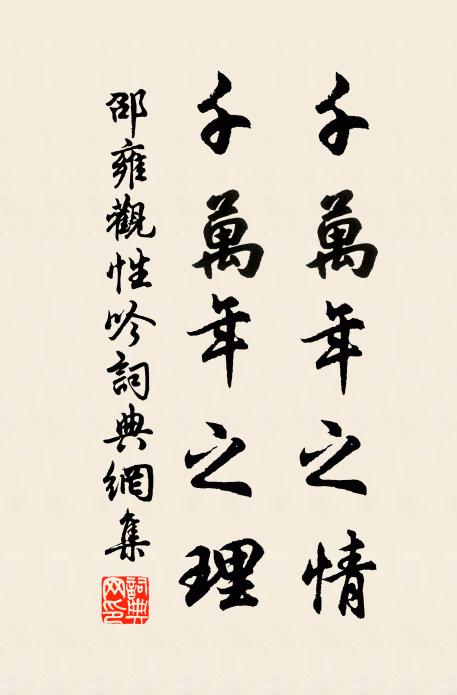 千萬年之情
千萬年之理
邵雍觀性吟詞典網集
詞典網印